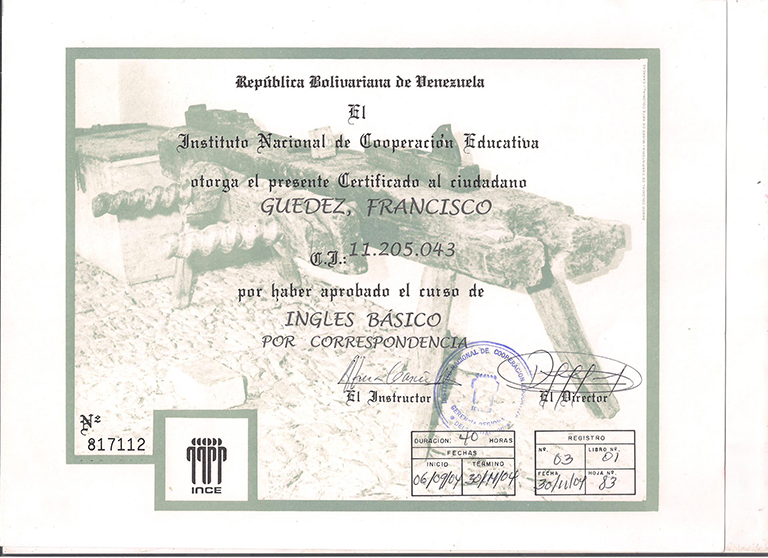 República Bolivariana de Venezuela
El
Instituto Nacional de Cooperación Educativa
otorga el presente Certificado al ciudadano
GUEDEZ, FRANCISCO
C.I.: 11.205.043
por haber aprobado el curso de
INGLES BÁSICO
POR CORRESPONDENCIA
El Instructor
El Director
NACIONAL DE COOPERACION
Nº
817112
INCE
DURACION: 40 HORAS
FECHAS
INICIO TERMINO
06/09/04 30/11/04
REGISTRO
Nº. 03 LIBRO Nº. 01
FECHA 30/11/04 HOJA Nº. 83